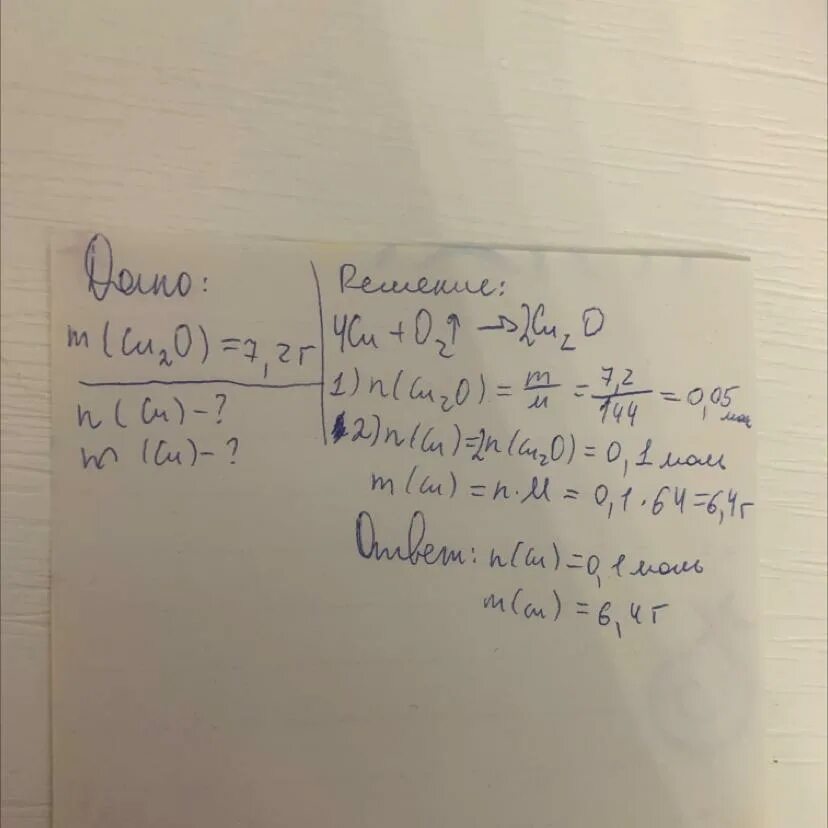 Дано:
m (Cu₂O) = 7,2г
n (Cu) - ?
m (Cu) - ?
Решение:
4Cu + O₂↑ → 2Cu₂O
1) n(Cu₂O) = m/M = 7,2/144 = 0,05 моль
2) n(Cu) = 2n(Cu₂O) = 0,1 моль
m(Cu) = n · M = 0,1 · 64 = 6,4г
Ответ: n(Cu) = 0,1 моль
m(Cu) = 6,4г